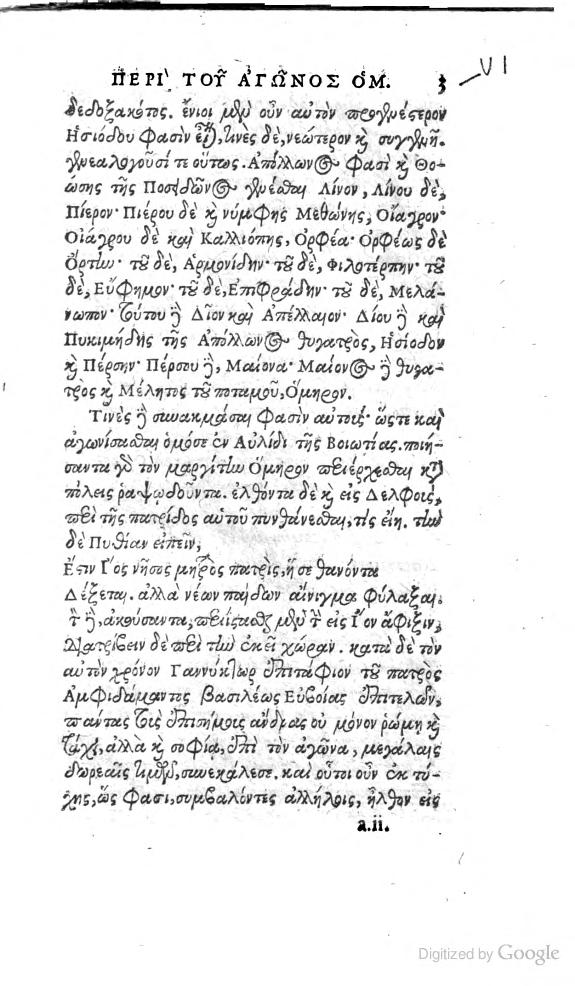 ΠΕΡΙ ΤΟΥ ἈΓΩΝΟΣ ΟΜ. 3
VI
δεδοξακότος. ἔνιοι μὲν οὖν αὐτὸν προγενέστερον
Ησιόδου φασὶν εἶναι, τινὲς δὲ, νεώτερον καὶ συγγενῆ.
γενεαλογοῦσί τε οὕτως. Ἀπόλλωνος φασὶ καὶ Θο-
ώσης τῆς Ποσειδῶνος γενέσθαι Λίνον, Λίνου δὲ,
Πίερον· Πιέρου δὲ καὶ νύμφης Μεθώνης, Οἴαγρον·
Οἰάγρου δὲ καὶ Καλλιόπης, Ορφέα· Ορφέως δὲ
Ὄρτην· τοῦ δὲ, Ἁρμονίδην· τοῦ δὲ, Φιλοτέρπην· τοῦ
δὲ, Εὔφημον· τοῦ δὲ, Ἐπιφράδην· τοῦ δὲ, Μελά-
νωπον· τούτου δὲ Δῖον καὶ Ἀπέλλαιον· Δίου δὲ καὶ
Πυκιμήδης τῆς Ἀπόλλωνος θυγατρὸς, Ησίοδον
καὶ Πέρσην· Πέρσου δὲ, Μαίονα· Μαίονος δὲ θυγα-
τρὸς καὶ Μέλητος τοῦ ποταμοῦ, Ὅμηρον.
Τινὲς δὲ συνακμάσαι φασὶν αὐτούς· ὥστε καὶ
ἀγωνίσασθαι ὁμόσε ἐν Αὐλίδι τῆς Βοιωτίας. ποιή-
σαντα γὰρ τὸν μαργίτην Ὅμηρον περιέρχεσθαι κατὰ
πόλεις ῥαψῳδοῦντα. ἐλθόντα δὲ καὶ εἰς Δελφοὺς,
περὶ τῆς πατρίδος αὑτοῦ πυνθάνεσθαι, τίς εἴη. τὴν
δὲ Πυθίαν εἰπεῖν,
Ἔστιν Ἴος νῆσος μητρὸς πατρὶς, ἥ σε θανόντα
Δέξεται. ἀλλὰ νέων παίδων αἴνιγμα φύλαξαι.
τὸν δὲ, ἀκούσαντα, περιΐστασθαι μὲν τὴν εἰς Ἴον ἄφιξιν,
Διατρίβειν δὲ περὶ τὴν ἐκεῖ χώραν. κατὰ δὲ τὸν
αὐτὸν χρόνον Γαννύκτωρ ἐπιτάφιον τοῦ πατρὸς
Ἀμφιδάμαντος βασιλέως Εὐβοίας ἐπιτελῶν,
πάντας τοὺς ἐπισήμους ἄνδρας οὐ μόνον ῥώμῃ καὶ
τάχει, ἀλλὰ καὶ σοφίᾳ, ἐπὶ τὸν ἀγῶνα, μεγάλαις
δωρεαῖς τιμῶν, συνεκάλεσε. καὶ οὗτοι οὖν ἐκ τύ-
χης, ὥς φασι, συμβαλόντες ἀλλήλοις, ἦλθον εἰς
a.ii.
Digitized by Google